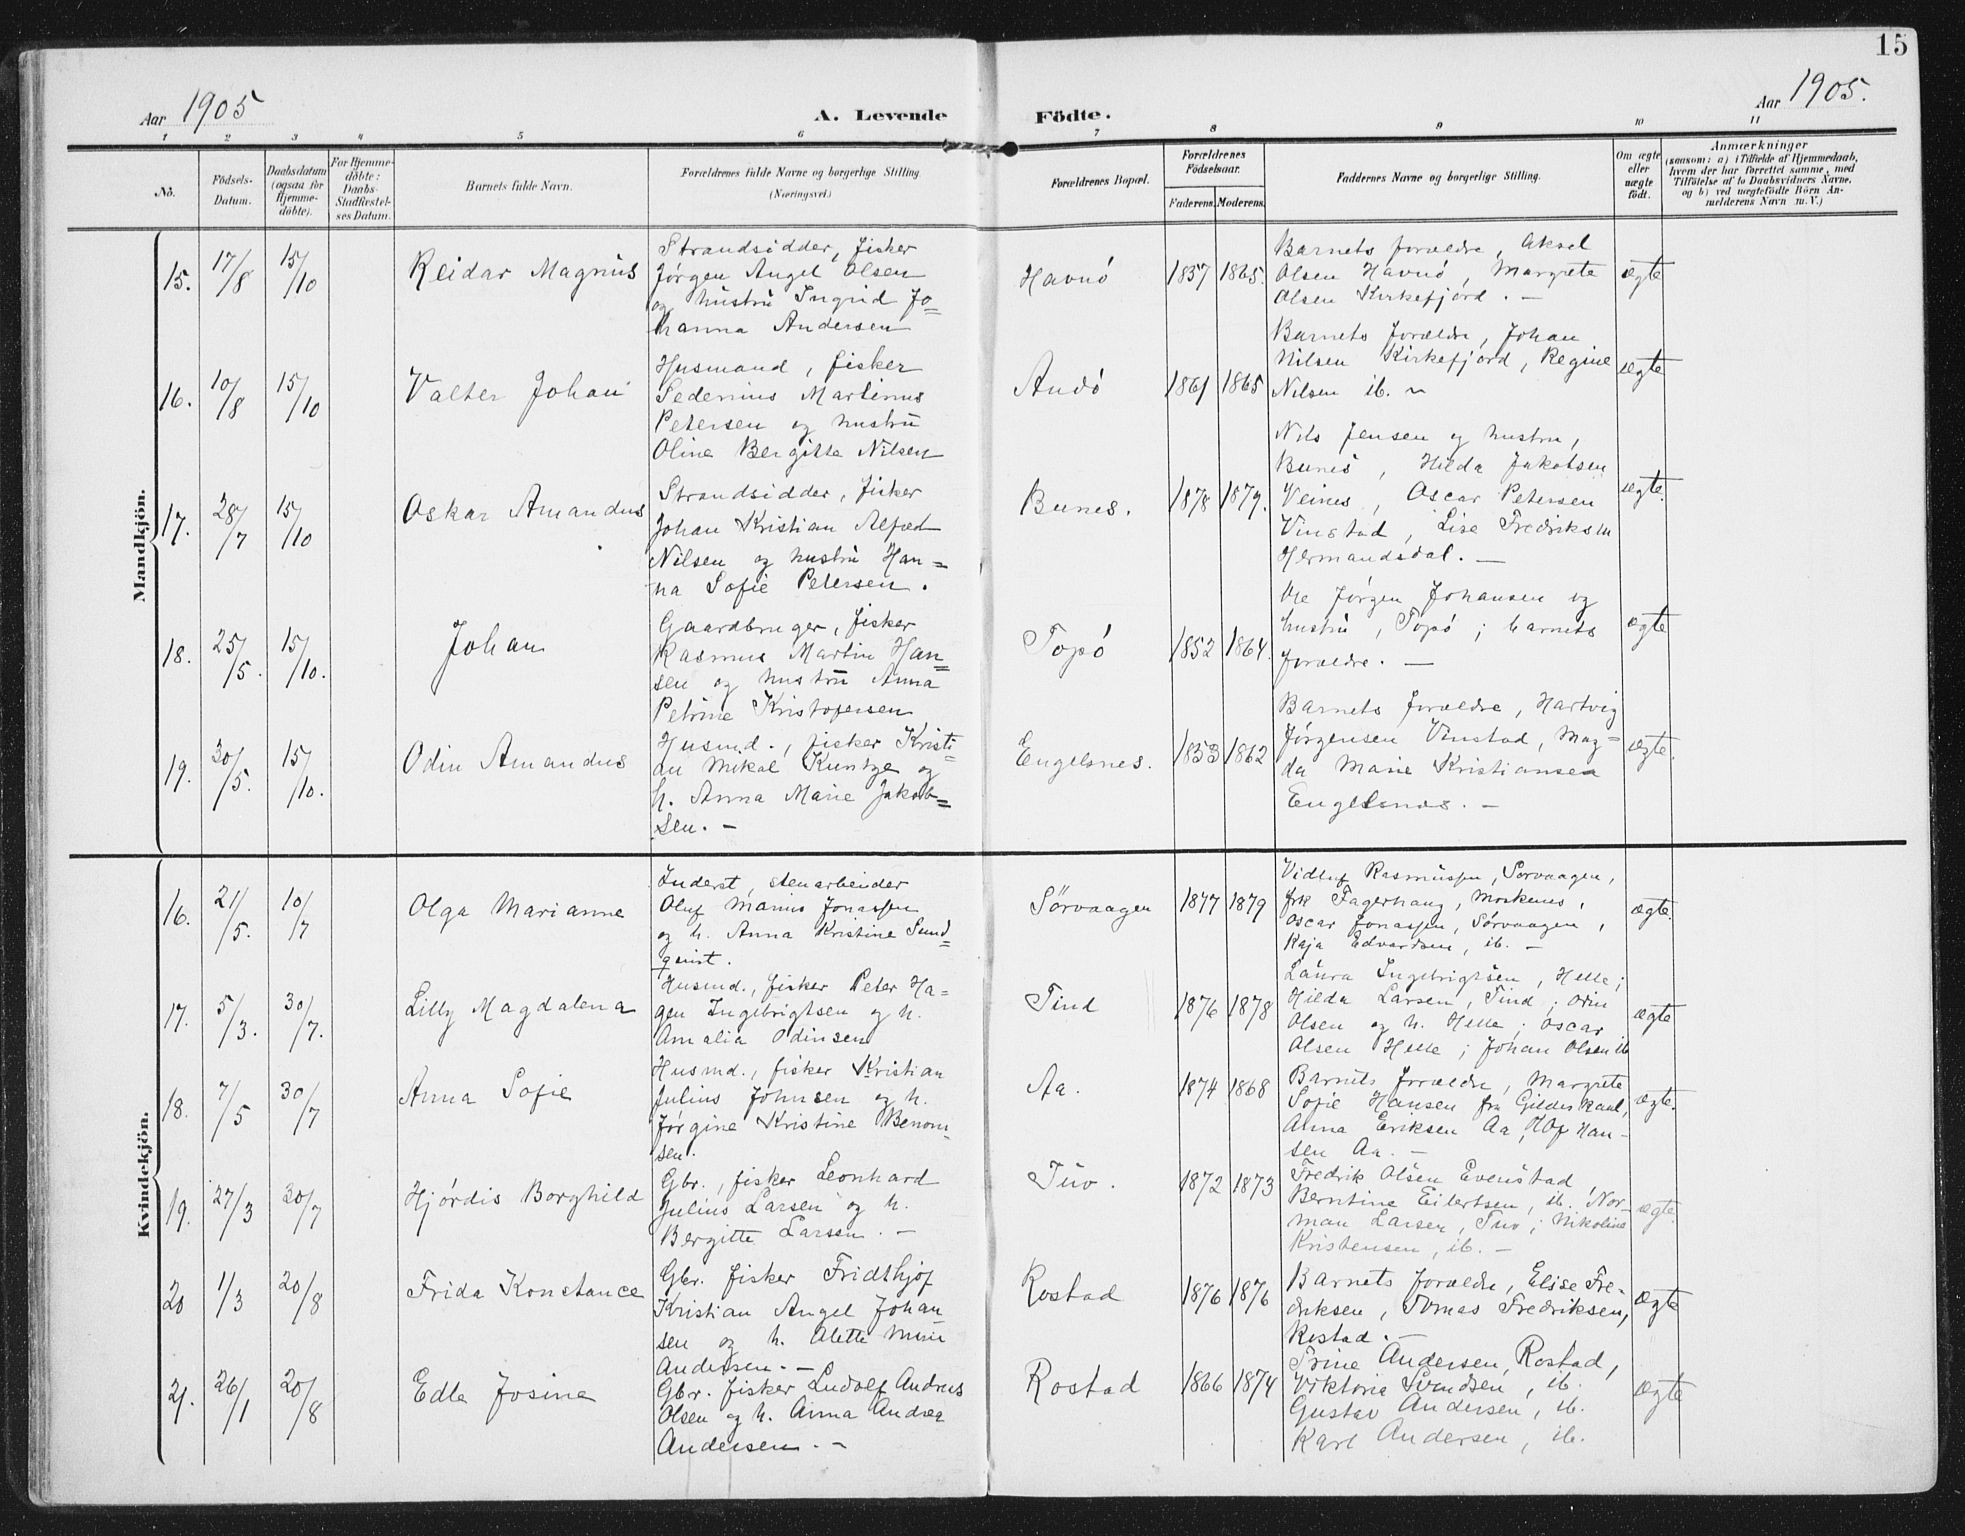 15
Aar 1905
A. Levende Födte.
Aar 1905.
1 2 3 4 5 6 7 8 9 10 11
No.
Födsels-Datum.
Daabsdatum (ogsaa for Hjemme-döbte).
For Hjemme-döbte: Daabs-Stadfæstel-ses Datum.
Barnets fulde Navn.
Forældrenes fulde Navne og borgerlige Stilling.
(Næringsvei.)
Forældrenes Bopæl.
Forældrenes Födselsaar.
Faderens. Moderens.
Faddernes Navne og borgerlige Stilling.
Om ægte eller uægte födt.
Anmærkninger
(saasom: a) i Tilfælde af Hjemmedaab,
hvem der har forrettet samme, med
Tilföielse af to Daabsvidners Navne,
og b) ved uægtefödte Börn An-
melderens Navn m. V.)
Mandkjön.
15. 17/8 15/10 Reidar Magnus
Strandsidder, fisker
Jørgen Angel Olsen
og hustru Ingrid Jo=
hanna Andersen
Havnö 1857 1865.
Barnets forældre, Aksel
Olsen Havnö, Margrete
Olsen Kirkefjord. —
ægte
16. 10/8 15/10 Valter Johan
Husmand, fisker
Sedenius Martinus
Petersen og hustru
Oline Bergitte Nilsen
Andö 1861 1865
Barnets forældre, Johan
Nilsen Kirkefjord, Regine
Nilsen ib. ~
ægte
17. 28/7 15/10 Oskar Amandus
Strandsidder, fisker
Johan Kristian Alfred
Nilsen og hustru Han=
na Sofie Petersen.
Bunes. 1878 1879.
Nils Jensen og hustru,
Bunes, Hilda Jakobsen
Veines, Oscar Petersen
Vinstad, Lise Fredriksen
Hermandsdal. —
ægte.
18. 25/5. 15/10. Johan
Gaardbruger, fisker
Rasmus Martin Han=
sen og hustru Anna
Petrine Kristofersen
Topö 1852 1864.
Ole Jørgen Johansen og
hustru, Topö; barnets
forældre. —
ægte
19. 30/5. 15/10. Odin Amandus
Husmd., fisker Kristi=
an Mikal Kuntze og
h. Anna Marie Jakob=
sen. —
Engelsnes. 1853 1862
Barnets forældre, Hartvig
Jørgensen Vinstad, Mag=
da Marie Kristiansen
Engelsnes. —
ægte.
Kvindekjön.
16. 21/5. 10/7 Olga Marianne
Inderst, stenarbeider
Oluf Marius Jonassen
og h. Anna Kristine Sund=
quist.
Sörvaagen 1877 1879
Rasmussen, Sörvaagen,
frk Fagerhaug, Moskenes,
Oscar Jonassen, Sörvaagen,
Kaja Edvardsen, ib. —
ægte.
17. 5/3. 30/7. Lilly Magdalena
Husmd., fisker Peter Ha=
gen Ingebrigtsen og h.
Amalia Odinsen
Tind 1876 1878
Laura Ingebrigtsen, Helle;
Hilda Larsen, Tind; Odin
Olsen og h. Helle; Oscar
Olsen Helle; Johan Olsen ib
ægte
18. 7/5 30/7 Anna Sofie
Husmd., fisker Kristian
Julius Johnsen og h.
Jørgine Kristine Benoni-
sen.
Aa. 1874 1868
Barnets forældre, Margrete
Sofie Hansen fra Gildeskaal,
Anna Eriksen Aa, Olof Han-
sen Aa. —
ægte.
19. 27/3 30/7 Hjördis Borghild
Gbr., fisker Leonhard
Julius Larsen og h.
Bergitte Larsen. —
Tuv. 1872 1873
Fredrik Olsen Evenstad,
Berntine Eilertsen, ib. Nor-
man Larsen, Tuv; Nikoline
Kristensen, ib. —
ægte.
20 1/3 20/8 Frida Konstance
Gbr. fisker Fridthjof
Kristian Angel Johan
sen og h. Alette Marie
Andersen. —
Rostad 1876 1876
Barnets forældre, Elise Fre-
driksen, Tomas Fredriksen,
Rostad. —
ægte
21. 26/1 20/8 Edle Josine
Gbr. fisker Ludolf Andreas
Olsen og h. Anna Andrea
Andersen. —
Rostad 1866 1874
Trine Andersen, Rostad,
Viktoria Svendsen, ib.
Gustav Andersen, ib.
Karl Andersen, ib.
ægte